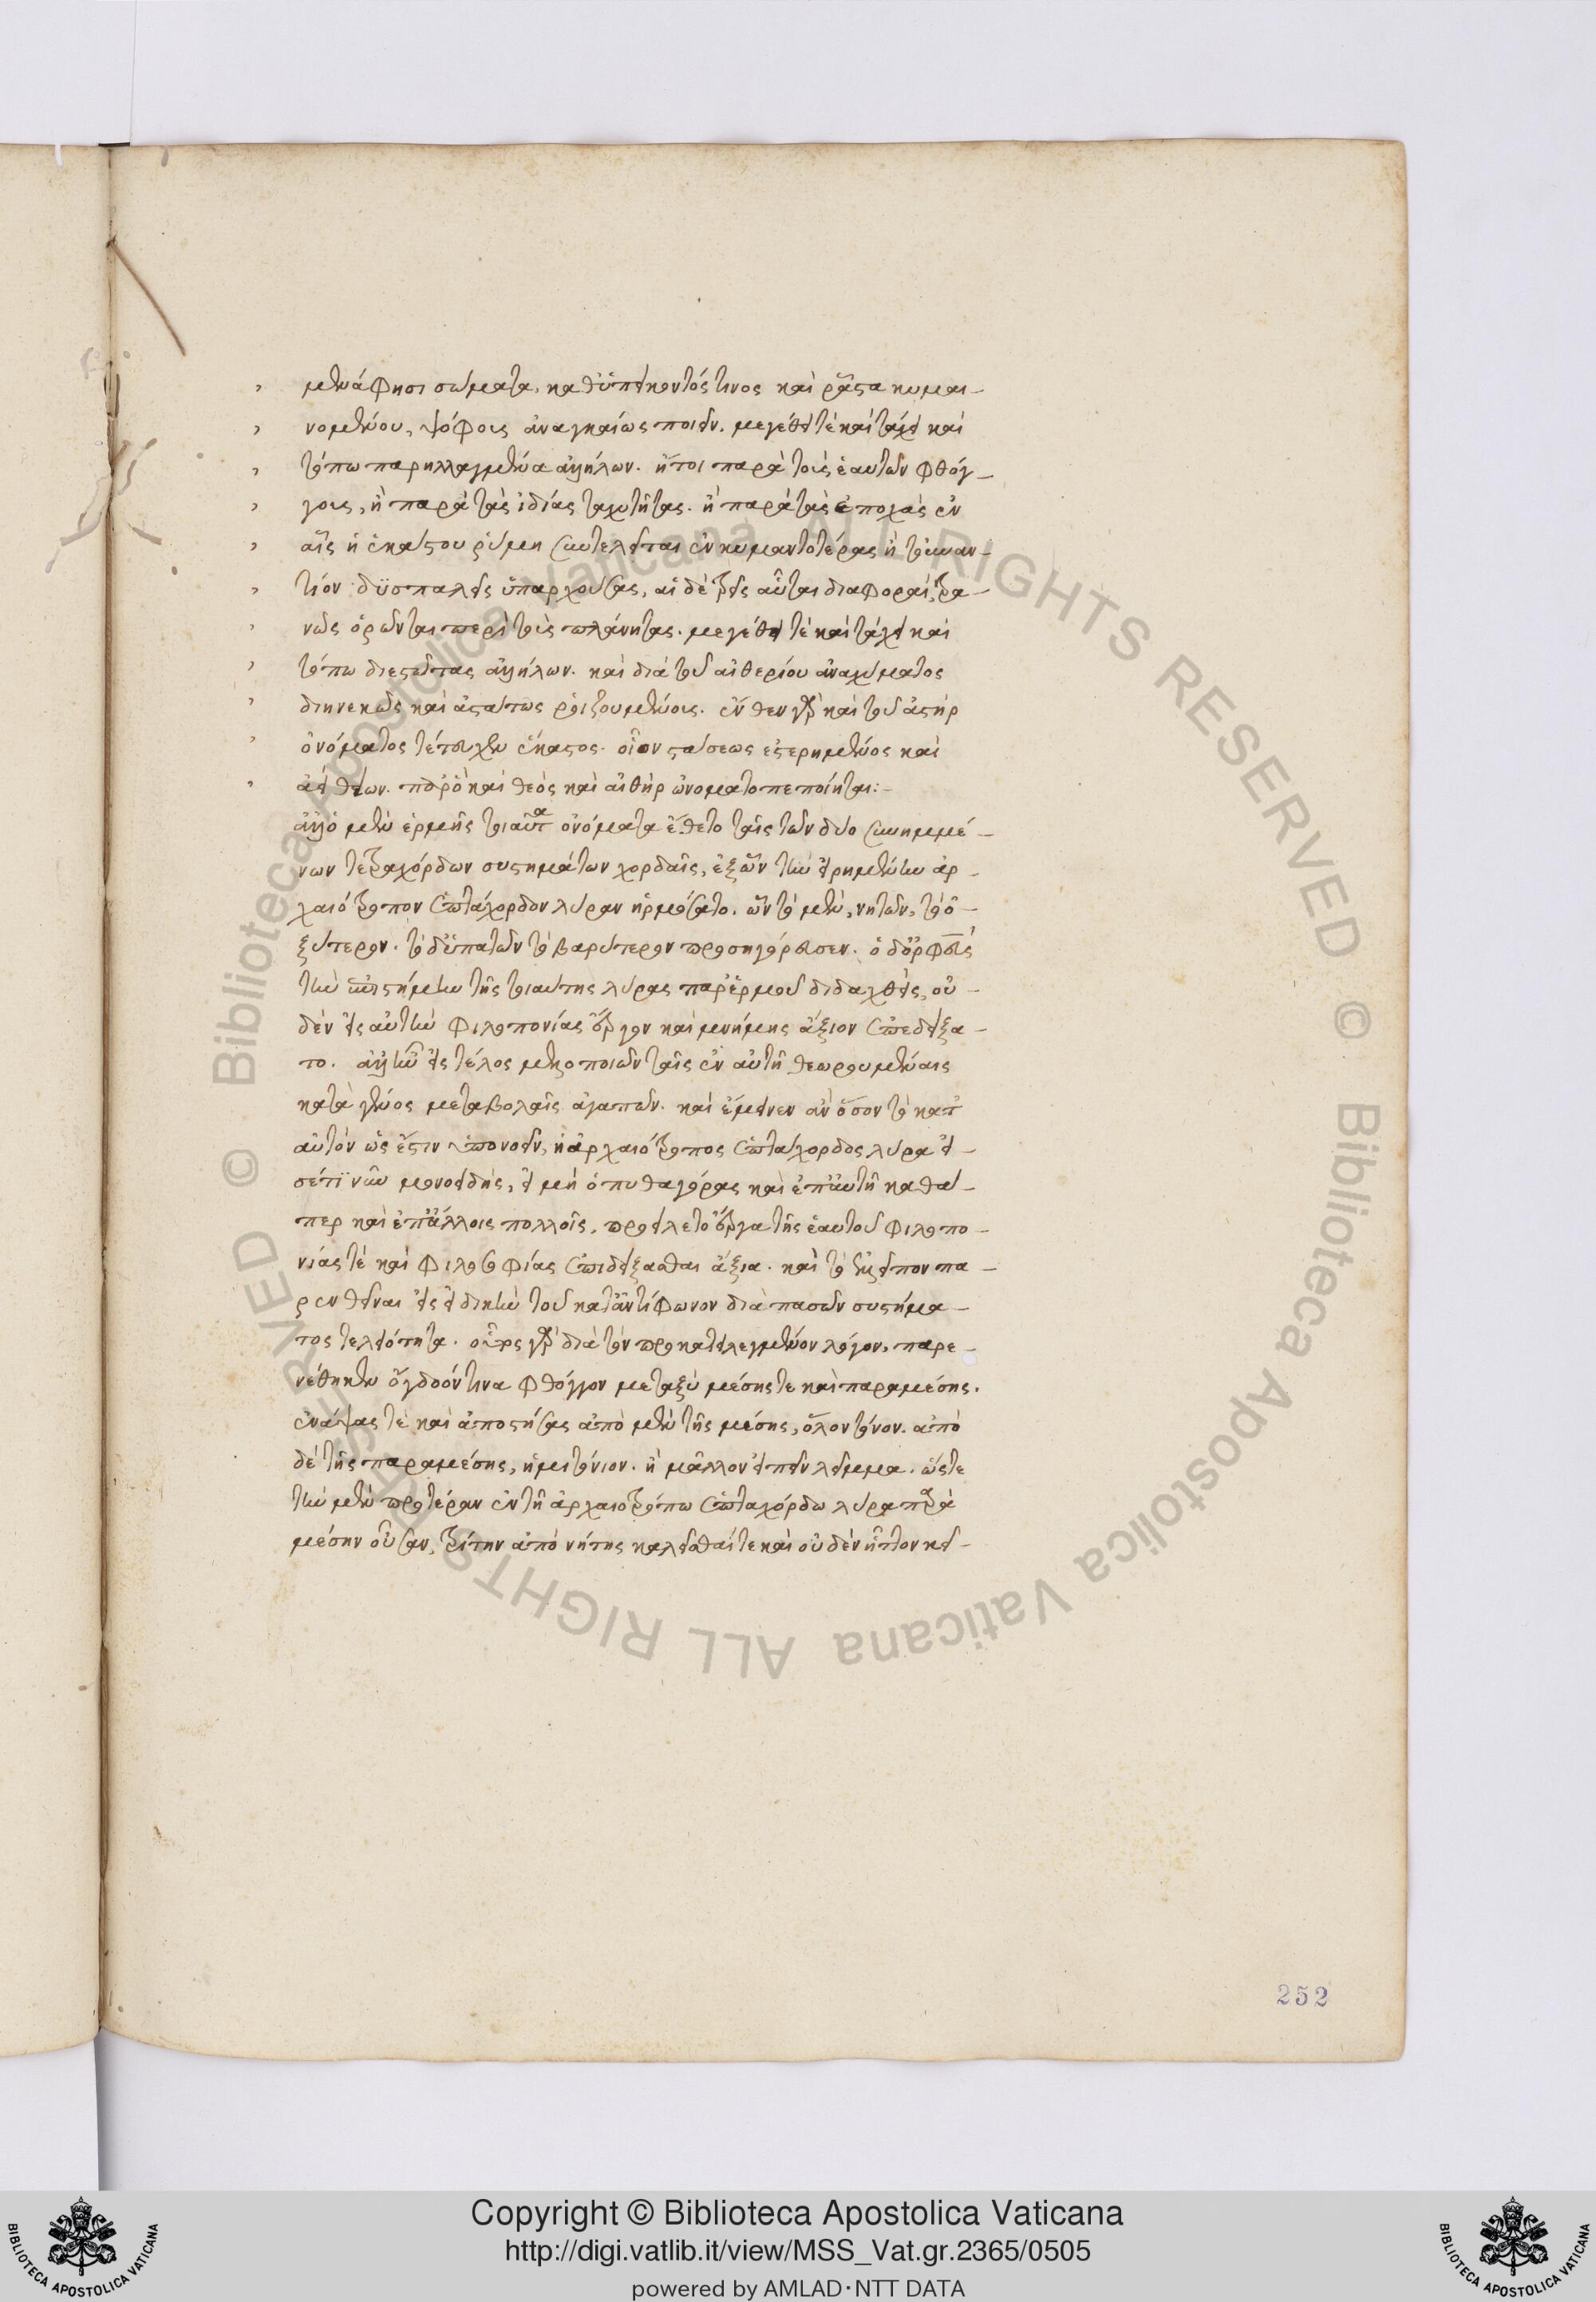 μενά φησι σώματα, καθυπείκοντός τινος καὶ ῥᾷστα κυμαι-
νομένου, ψόφους ἀναγκαίως ποιεῖν. μεγέθει τὲ καὶ τάχει καὶ
τόπω παρηλλαγμένα ἀλλήλων. ἤτοι παρὰ τοὺς ἑαυτῶν φθόγ-
γους, ἢ παρὰ τὰς ἰδίας ταχυτῆτας. ἢ παρὰ τὰς ἐποχὰς ἐν
αἷς ἡ ἑκάστου ῥύμη συντελεῖται ἐν κυμαντοτέρας ἢ τουναν-
τίον δυσπαλεῖς ὑπαρχούσας, αἱ δὲ τρεῖς αὗται διαφοραὶ, τρα-
νῶς ὁρῶνται περὶ τοὺς πλάνητας. μεγέθει τὲ καὶ τάχει καὶ
τόπω διεστῶτας ἀλλήλων. καὶ διὰ τοῦ αἰθερίου ἀναχύματος
διηνεκῶς καὶ ἀστάτως ῥοιζουμένους. ἔνθεν γὰρ καὶ τοῦ ἀστὴρ
ὀνόματος τέτευχεν ἕκαστος. οἷον στάσεως ἐστερημένος καὶ
ἀεὶ θέων. παρὸ καὶ θεὸς καὶ αἰθὴρ ὠνοματοπεποίηται:-
ἀλλ' ὁ μὲν ἑρμῆς τοιαῦτα ὀνόματα ἔθετο ταῖς τῶν δύο συνημμέ-
νων τετραχόρδων συστημάτων χορδαῖς, ἐξ ὧν τὴν εἰρημένην ἀρ-
χαιότροπον ἑπτάχορδον λύραν ἡρμόσατο. ὧν τὸ μὲν, νητῶν, τὸ ὀ-
ξύτερον. τὸ δ' ὑπατῶν τὸ βαρύτερον προσηγόρευσεν. ὁ δ' ὀρφεὺς
τὴν ἐπιστήμην τῆς τοιαύτης λύρας παρ' ἑρμοῦ διδαχθεὶς, οὐ-
δὲν εἰς αὐτὴν φιλοπονίας ἔργον καὶ μνήμης ἄξιον ἐπεδείξα-
το. ἀλλ' ἦν εἰς τέλος μελοποιῶν ταῖς ἐν αὐτῆ θεωρουμέναις
κατὰ γένος μεταβολαῖς ἀγαπῶν. καὶ ἔμεινεν ἂν ὅσον τὸ κατ'
αὐτὸν ὡς ἔστιν ὑπονοεῖν, ἡ ἀρχαιότροπος ἑπτάχορδος λύρα εἰ-
σέτι νῦν μονοειδὴς, εἰ μὴ ὁ πυθαγόρας καὶ ἐπ' αὐτῆ καθά-
περ καὶ ἐπ' ἄλλοις πολλοῖς, προείλετο ἔργα τῆς ἑαυτοῦ φιλοπο-
νίας τὲ καὶ φιλοσοφίας ἐπιδείξασθαι ἄξια. καὶ τὸ λεῖπον πα-
ρενθεῖναι εἰς εἰδικὴν τοῦ κατ' ἀντίφωνον διὰ πασῶν συστήμα-
τος τελειότητα. οὗτος γὰρ διὰ τὸν προκατειλεγμένον λόγον, παρε-
νέθηκεν ὄγδοόν τινα φθόγγον μεταξὺ μέσης τε καὶ παραμέσης.
ἐνάψας τὲ καὶ ἀποστήσας ἀπὸ μὲν τῆς μέσης, ὅλον τόνον. ἀπὸ
δὲ τῆς παραμέσης, ἡμιτόνιον. ἢ μᾶλλον εἰπεῖν λεῖμμα. ὥστε
τὴν μὲν προτέραν ἐν τῆ ἀρχαιοτρόπω ἑπταχόρδω λύρα παρὰ
μέσην οὖσαν, τρίτην ἀπὸ νήτης καλεῖσθαί τε καὶ οὐδὲν ἧττον κεῖ-
252
Copyright © Biblioteca Apostolica Vaticana
http://digi.vatlib.it/view/MSS_Vat.gr.2365/0505
powered by AMLAD·NTT DATA